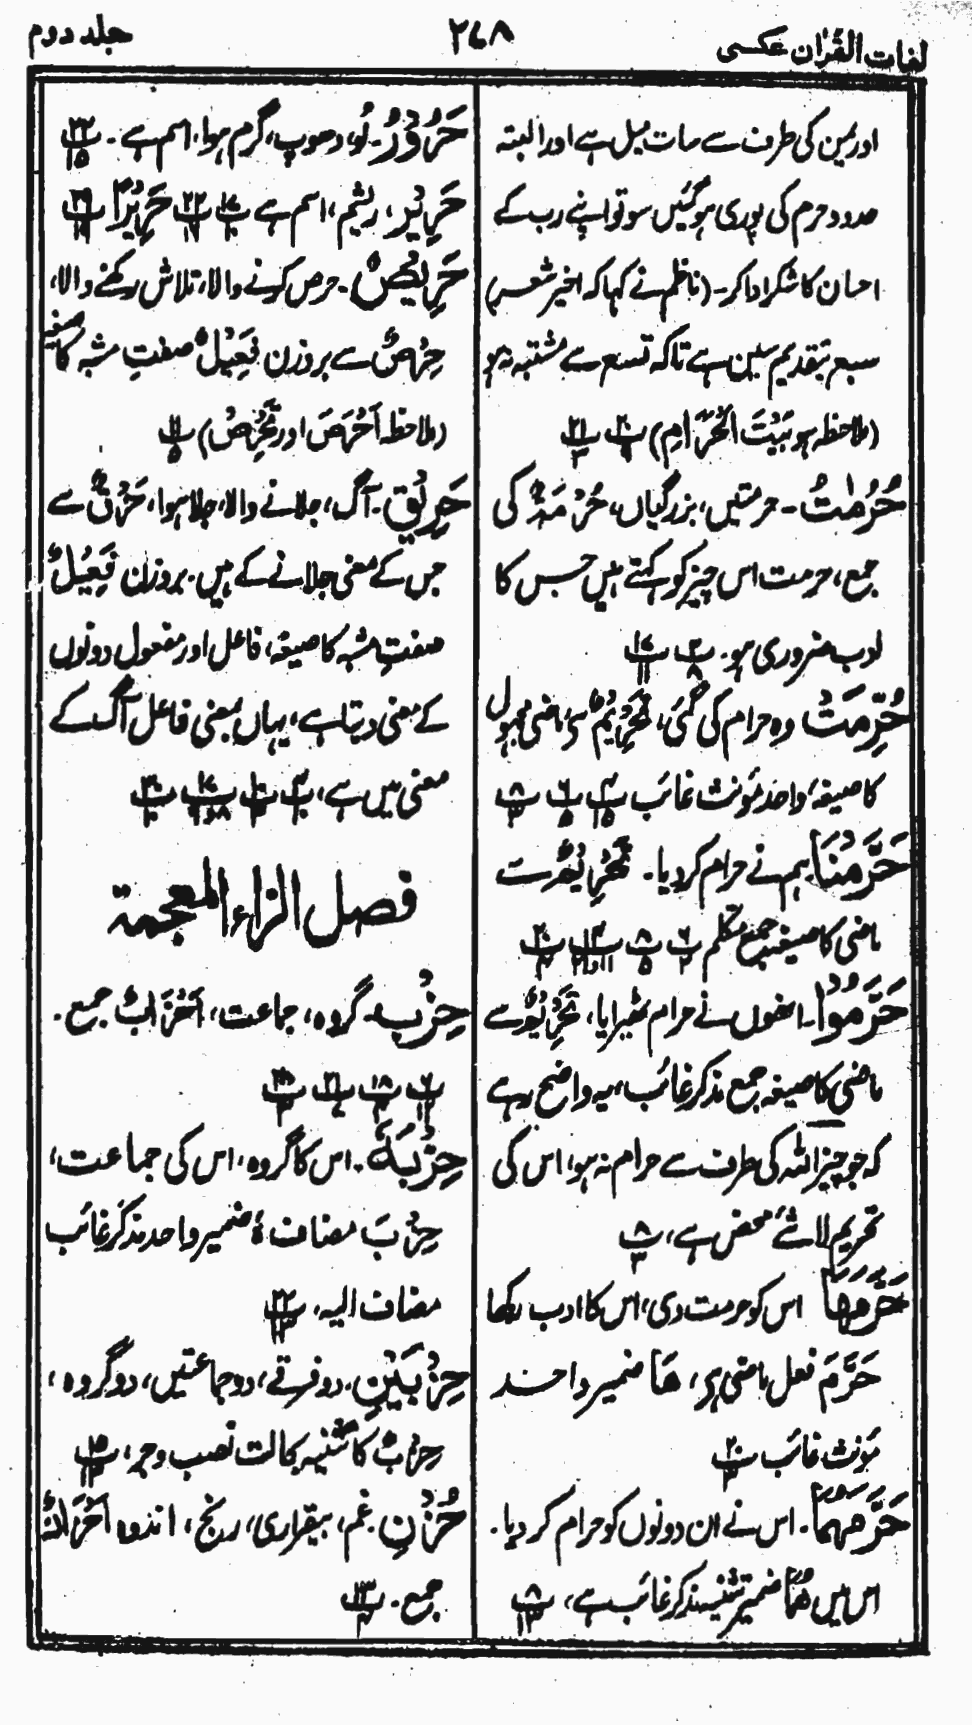 لغات القرآن عکسی
۲۶۸
جلد دوم
اور یمن کی طرف سے سات میل ہے اور البتہ
حدود حرم کی پوری ہو گئیں سو تو اپنے رب کے
احسان کا شکر ادا کر۔ (ناظم نے کہا کہ اخیر شعر)
سبع بتقدیم سین ہے تاکہ تسع سے مشتبہ نہ ہو
(ملاحظہ ہو بَیْتَ الْحَرَامِ)
حُرُمٰتُ۔ حرمتیں، بزرگیاں، حُرْمَۃٌ کی
جمع، حرمت اس چیز کو کہتے ہیں جس کا
ادب ضروری ہو۔
حُرِّمَتْ وہ حرام کی گئی، تَحْرِیْمٌ سے، ماضی مجہول
کا صیغہ، واحد مؤنث غائب
حَرَّمْنَا ہم نے حرام کر دیا۔ تَحْرِیْمٌ سے
ماضی کا صیغہ جمع متکلم
حَرَّمُوْا۔ انھوں نے حرام ٹھیرایا، تَحْرِیْمٌ سے
ماضی کا صیغہ جمع مذکر غائب، یہ واضح رہے
کہ جو چیز اللہ کی طرف سے حرام نہ ہو، اس کی
تحریم لا شئے محض ہے،
حَرَّمَهَا اس کو حرمت دی، اس کا ادب رکھا
حَرَّمَ فعل ماضی ہے، هَا ضمیر واحد
مؤنث غائب
حَرَّمَهُمَا۔ اس نے ان دونوں کو حرام کر دیا۔
اس میں هُمَا ضمیر تثنیہ مذکر غائب ہے،
حَرُوْرُ۔ لُو، دھوپ، گرم ہوا، اسم ہے۔
حَرِیْر، ریشم، اسم ہے حَرِیْرًا
حَرِیْصٌ۔ حرص کرنے والا، تلاش رکھنے والا،
حِرْصٌ سے بروزن فَعِیْلٌ صفتِ مشبہ کا صیغہ
(ملاحظہ اَحْرَصَ اور تَحْرِصْ)
حَرِیْق۔ آگ، جلانے والا، جلا ہوا، حَرْقٌ سے
جس کے معنی جلانے کے ہیں۔ بروزن فَعِیْلٌ
صفتِ مشبہ کا صیغہ، فاعل اور مفعول دونوں
کے معنی دیتا ہے، یہاں بمعنی فاعل آگ کے
معنی میں ہے،
فصل الزاء المعجمۃ
حِزْب۔ گروہ، جماعت، اَحْزَابٌ جمع۔
حِزْبَهٗ۔ اس کا گروہ، اس کی جماعت،
حِزْبَ مضاف ہٗ ضمیر واحد مذکر غائب
مضاف الیہ،
حِزْبَیْنِ۔ دو فرقے، دو جماعتیں، دو گروہ،
حِزْبٌ کا تثنیہ بحالت نصب و جر،
حُزْنِ۔ غم، بیقراری، رنج، اندوہ اَحْزَانٌ
جمع۔